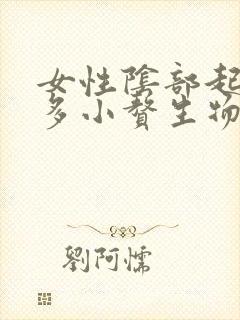 女性陰部起
多小贅生物
劉阿懦